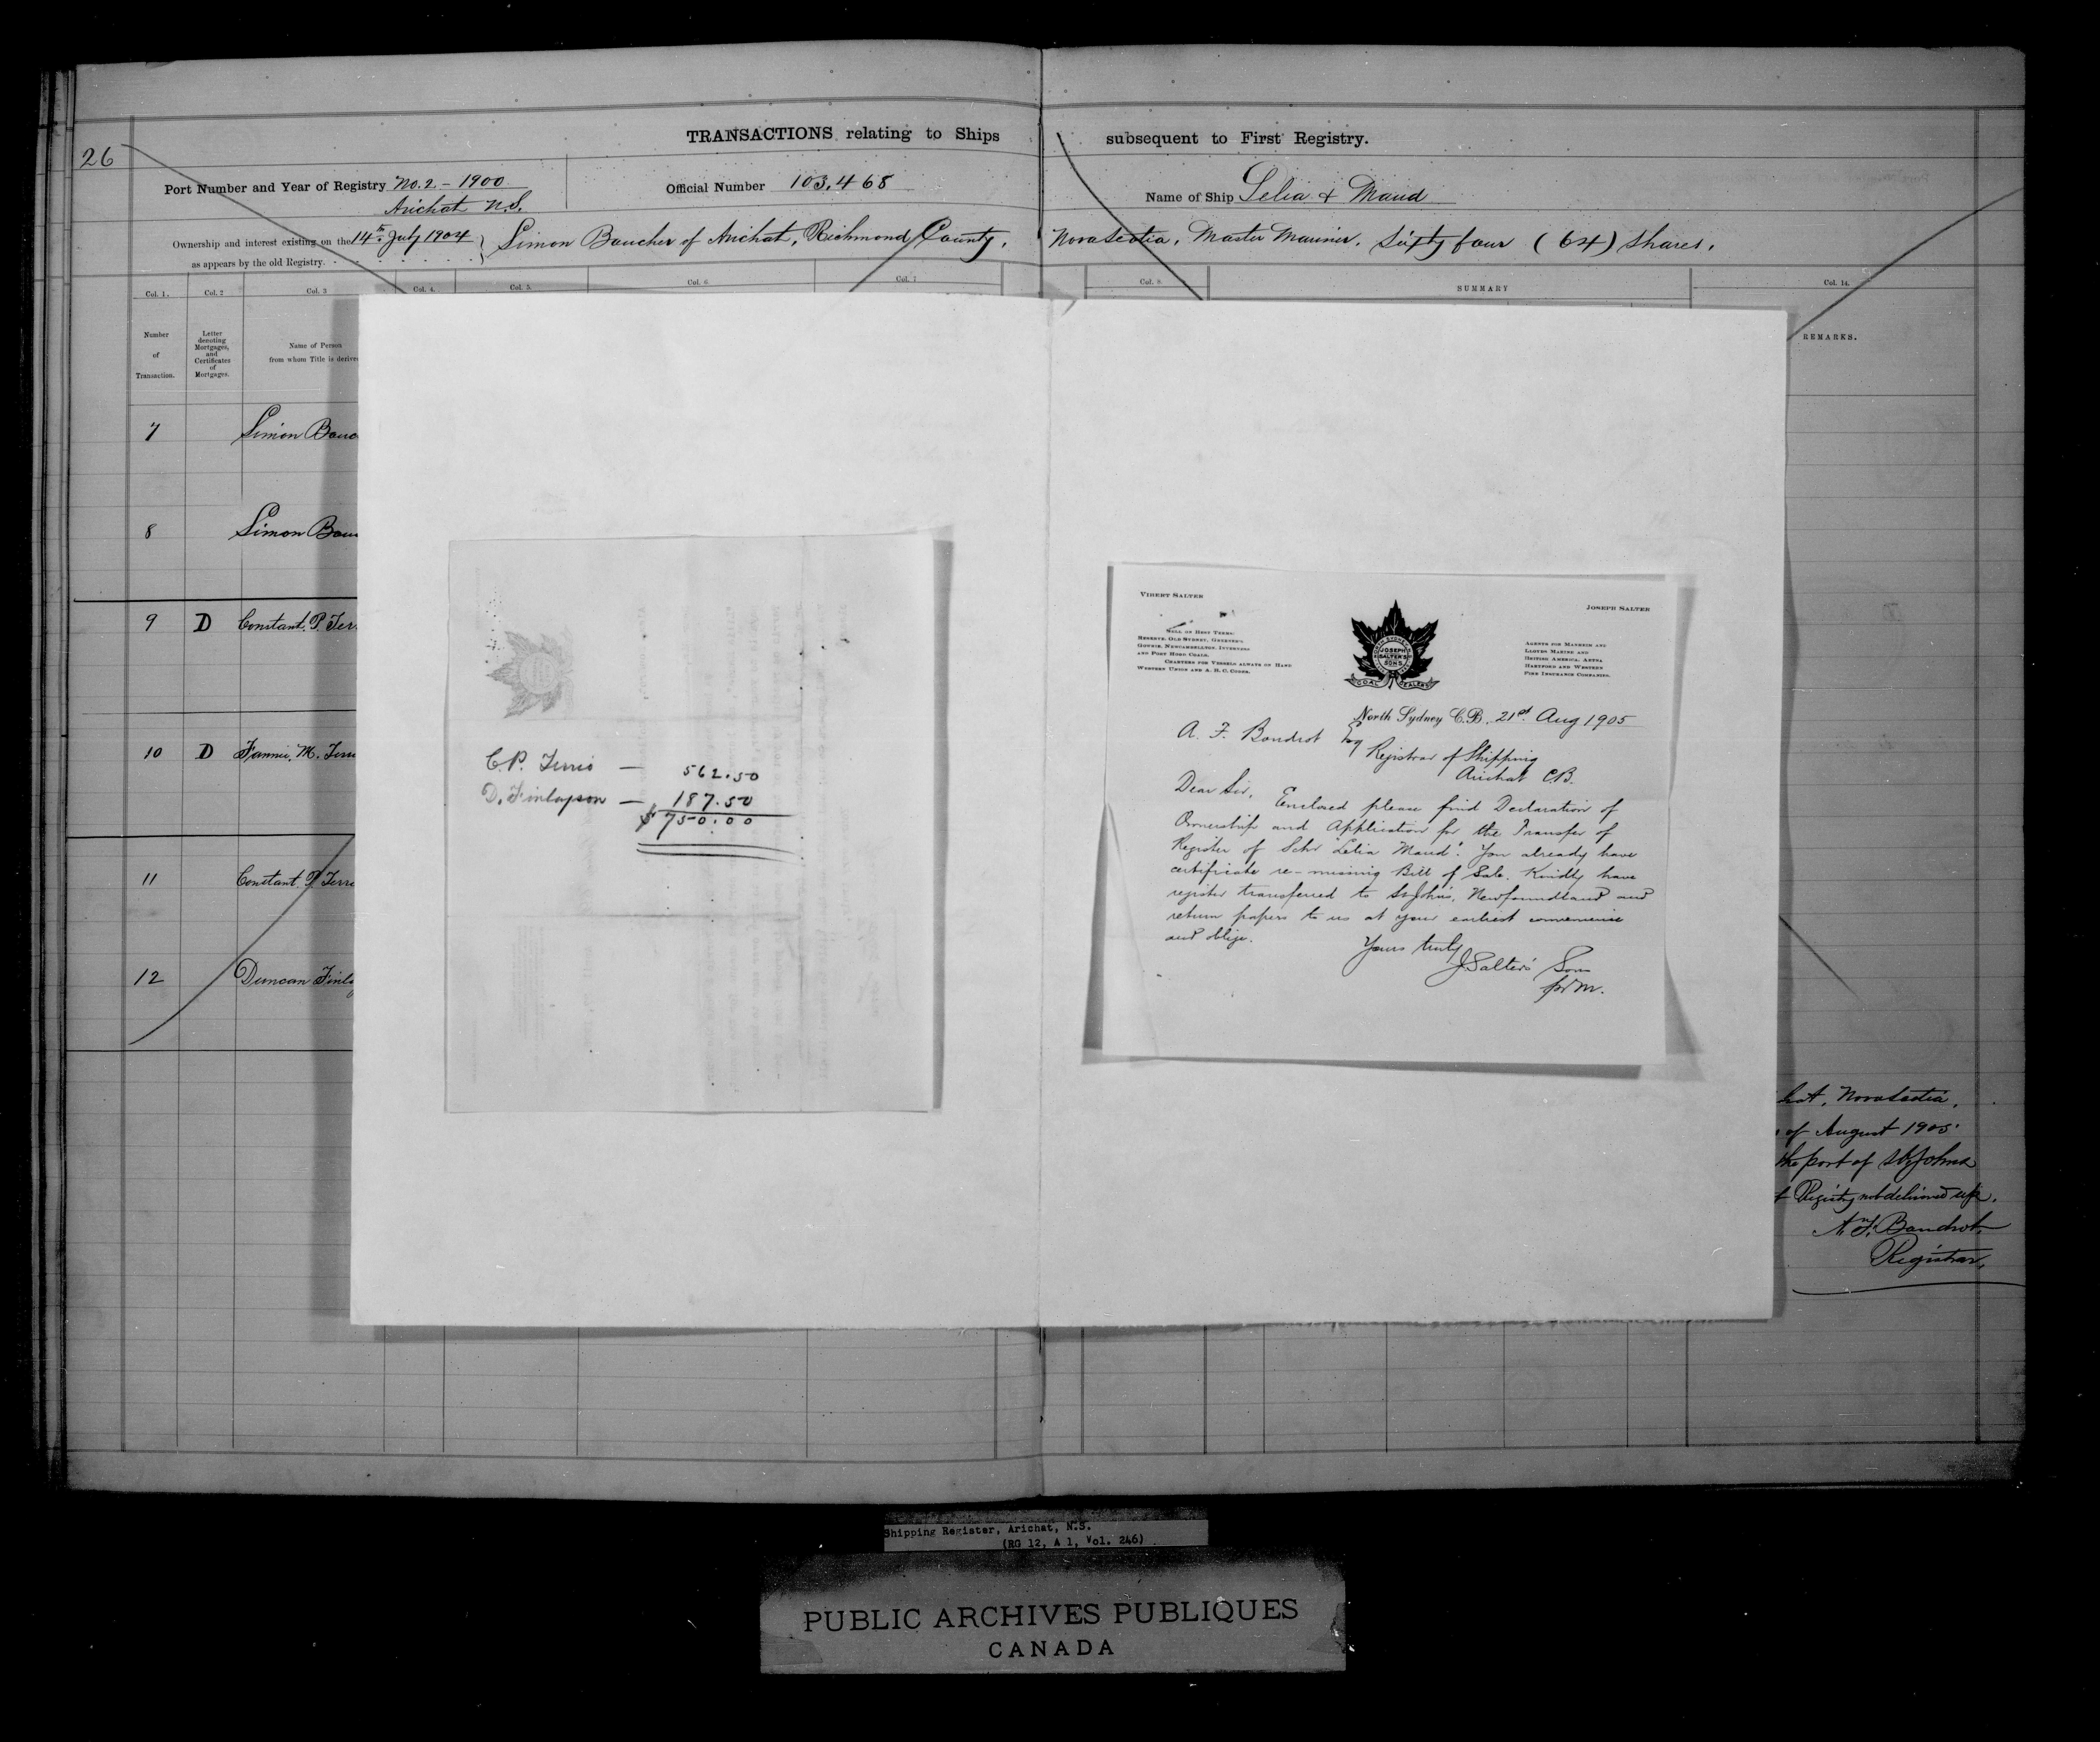 26
TRANSACTIONS relating to Ships subsequent to First Registry.
Port Number and Year of Registry No. 2 - 1900
Arichat N.S.
Official Number 103,468
Name of Ship Lelia & Maud
Ownership and interest existing on the 14th July 1904
as appears by the old Registry.
Simon Boucher of Arichat, Richmond County, Nova Scotia, Master Mariner, Sixty four (64) Shares.
Col. 1. Col. 2 Col. 3 Col. 4. Col. 5. Col. 6 Col. 7 Col. 8 SUMMARY Col. 14.
Number
of
Transaction.
Letter
denoting
Mortgages,
and
Certificates
of
Mortgages.
Name of Person
from whom Title is derive
REMARKS.
7 Simon Bouc
8 Simon Bou
9 D Constant. P. Ter
10 D Fannie. M. Terr
11 Constant. P. Terr
12 Duncan Finla
C. P. Terrio — 562.50
D. Finlayson — 187.50
$750.00
VIBERT SALTER
JOSEPH SALTER
SELL ON BEST TERMS:
RESERVE, OLD SYDNEY, GOWRIE,
AND PORT HOOD COALS.
CHARTERS FOR VESSELS ALWAYS ON HAND
WESTERN UNION AND A. B. C. CODES.
NORTH SYDNEY
JOSEPH
SALTER'S
SONS
COAL DEALERS
AGENTS FOR MANNHEIM AND
LLOYDS MARINE AND
BRITISH AMERICA, AETNA
HARTFORD AND WESTERN
FIRE INSURANCE COMPANIES.
North Sydney C.B. 21st Aug 1905
A. F. Boudrot Esq
Registrar of Shipping
Arichat C.B.
Dear Sir,
Enclosed please find Declaration of
Ownership and Application for the Transfer of
Register of Schr "Lelia Maud". You already have
certificate re-missing Bill of Sale. Kindly have
register transferred to St. John's, Newfoundland and
return papers to us at your earliest convenience
and oblige.
Yours truly
J. Salter's Sons
pr M.
hat, Nova Scotia,
of August 1905.
the port of St. Johns
Registry not delivered up.
A. F. Boudrot,
Registrar,
Shipping Register, Arichat, N.S.
(RG 12, A 1, Vol. 246)
PUBLIC ARCHIVES PUBLIQUES
CANADA